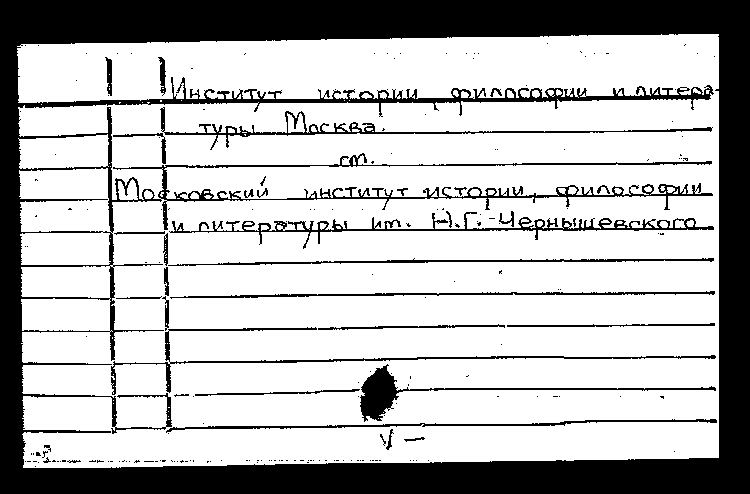 Институт истории, философии и литера-
туры Москва.
ст.
Московский институт истории, философии
и литературы им. Н.Г. Чернышевского
V —